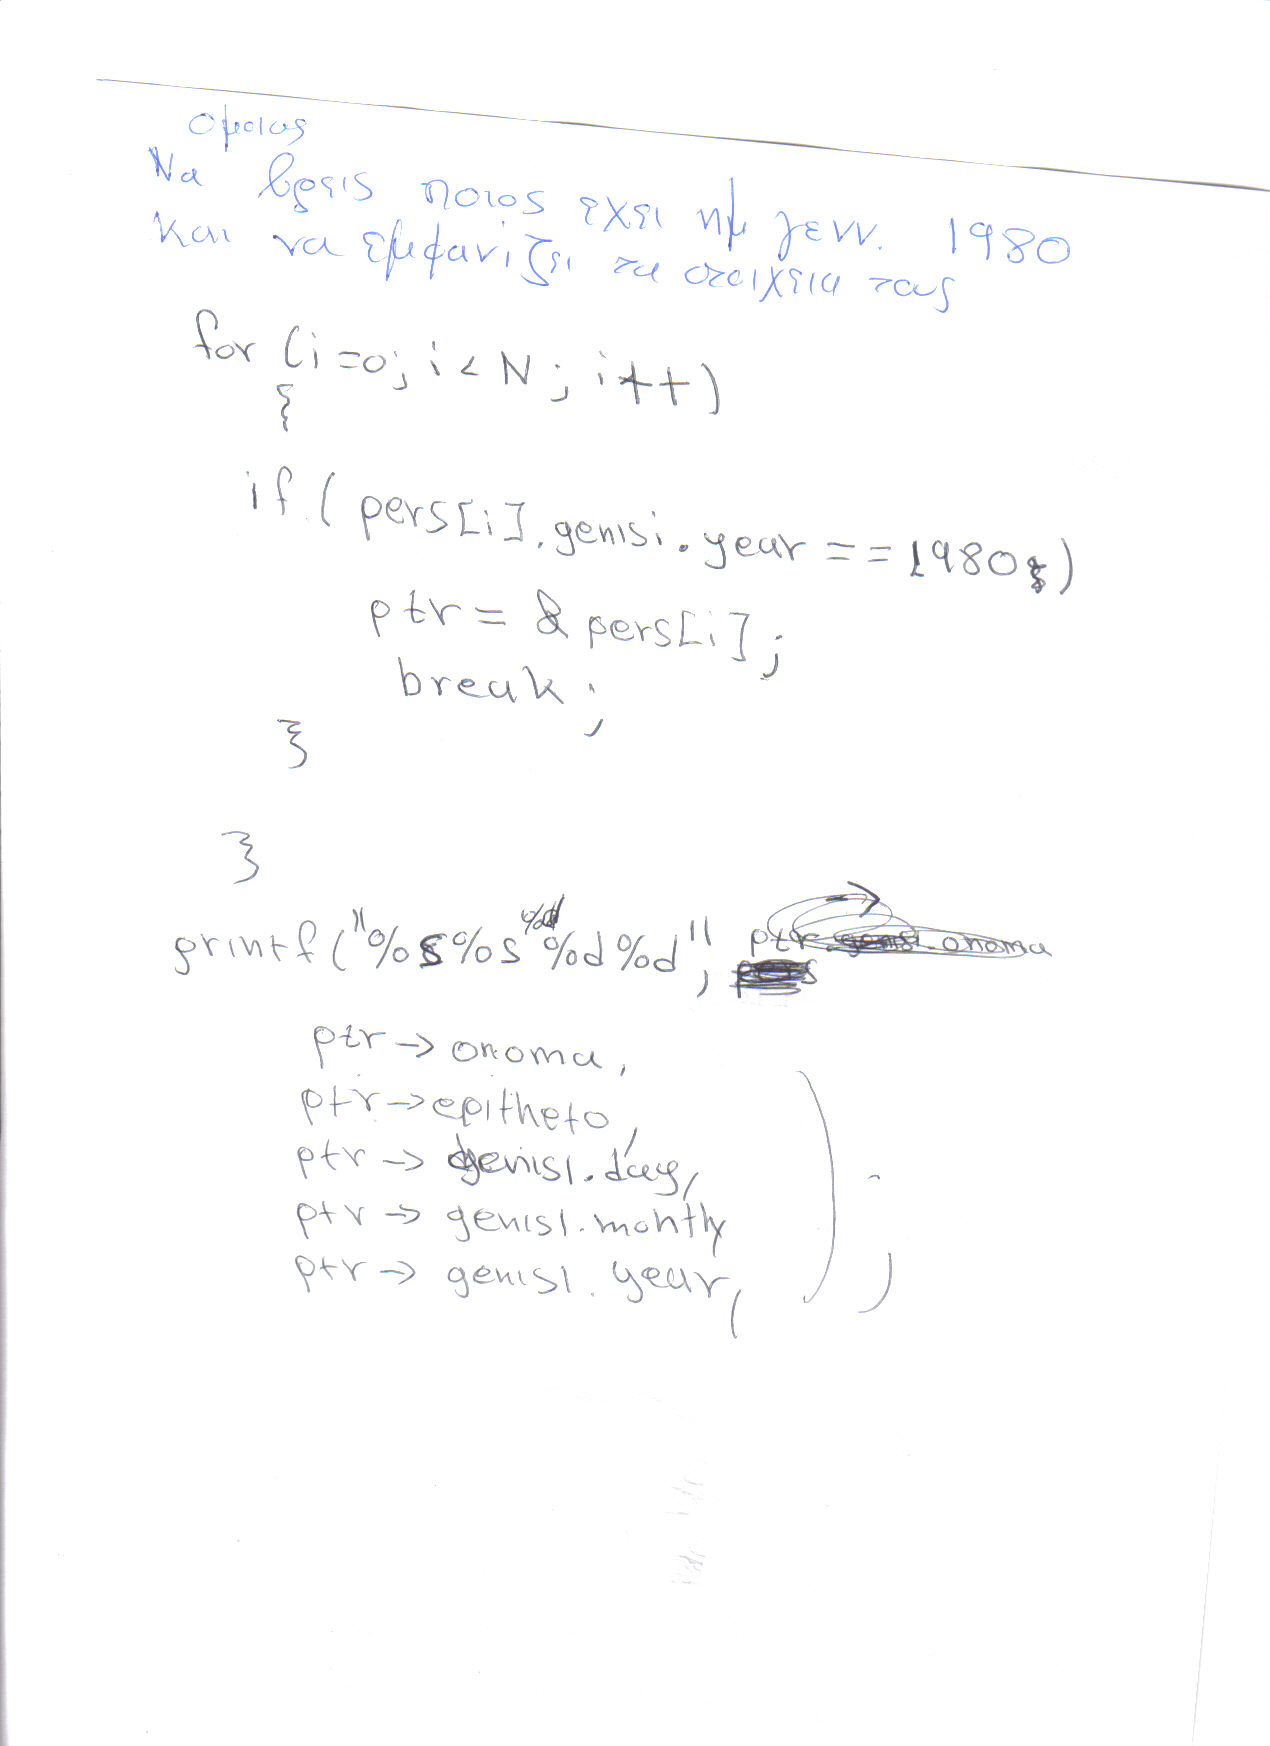 ομοιως
Να βρεις ποιος εχει ημ γενν. 1980
και να εμφανιζει τα στοιχεια τους
for (i=0; i < N ; i++)
{
if ( pers[i].genisi.year == 1980)
ptr = & pers[i];
break;
}
}
printf("%s%s %d %d%d", ptr
ptr -> onoma,
ptr -> epitheto,
ptr -> genisi.day,
ptr -> genisi.month,
ptr -> genisi.year,
) ;